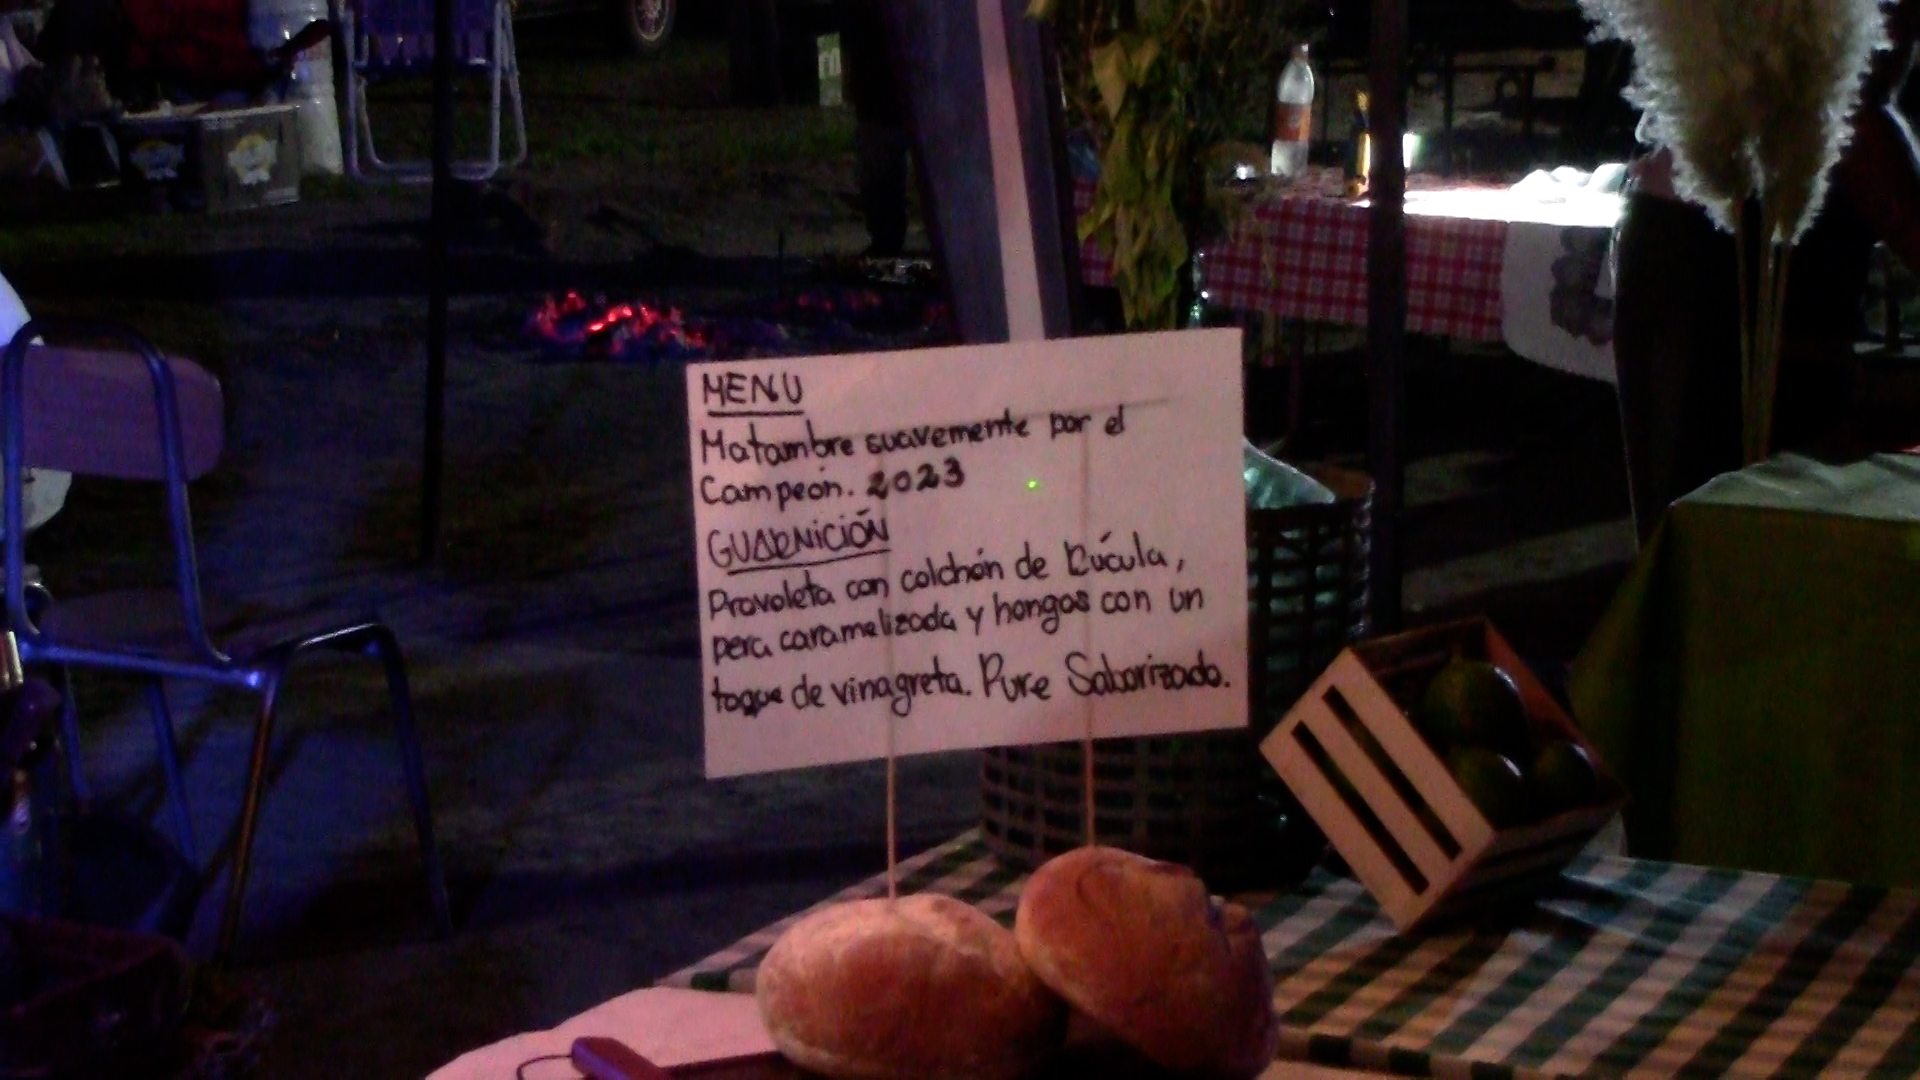 MENU
Matambre suavemente por el
Campeón. 2023
GUARNICIÓN
Provoleta con colchón de Rúcula,
pera caramelizada y hongos con un
toque de vinagreta. Pure Saborizado.